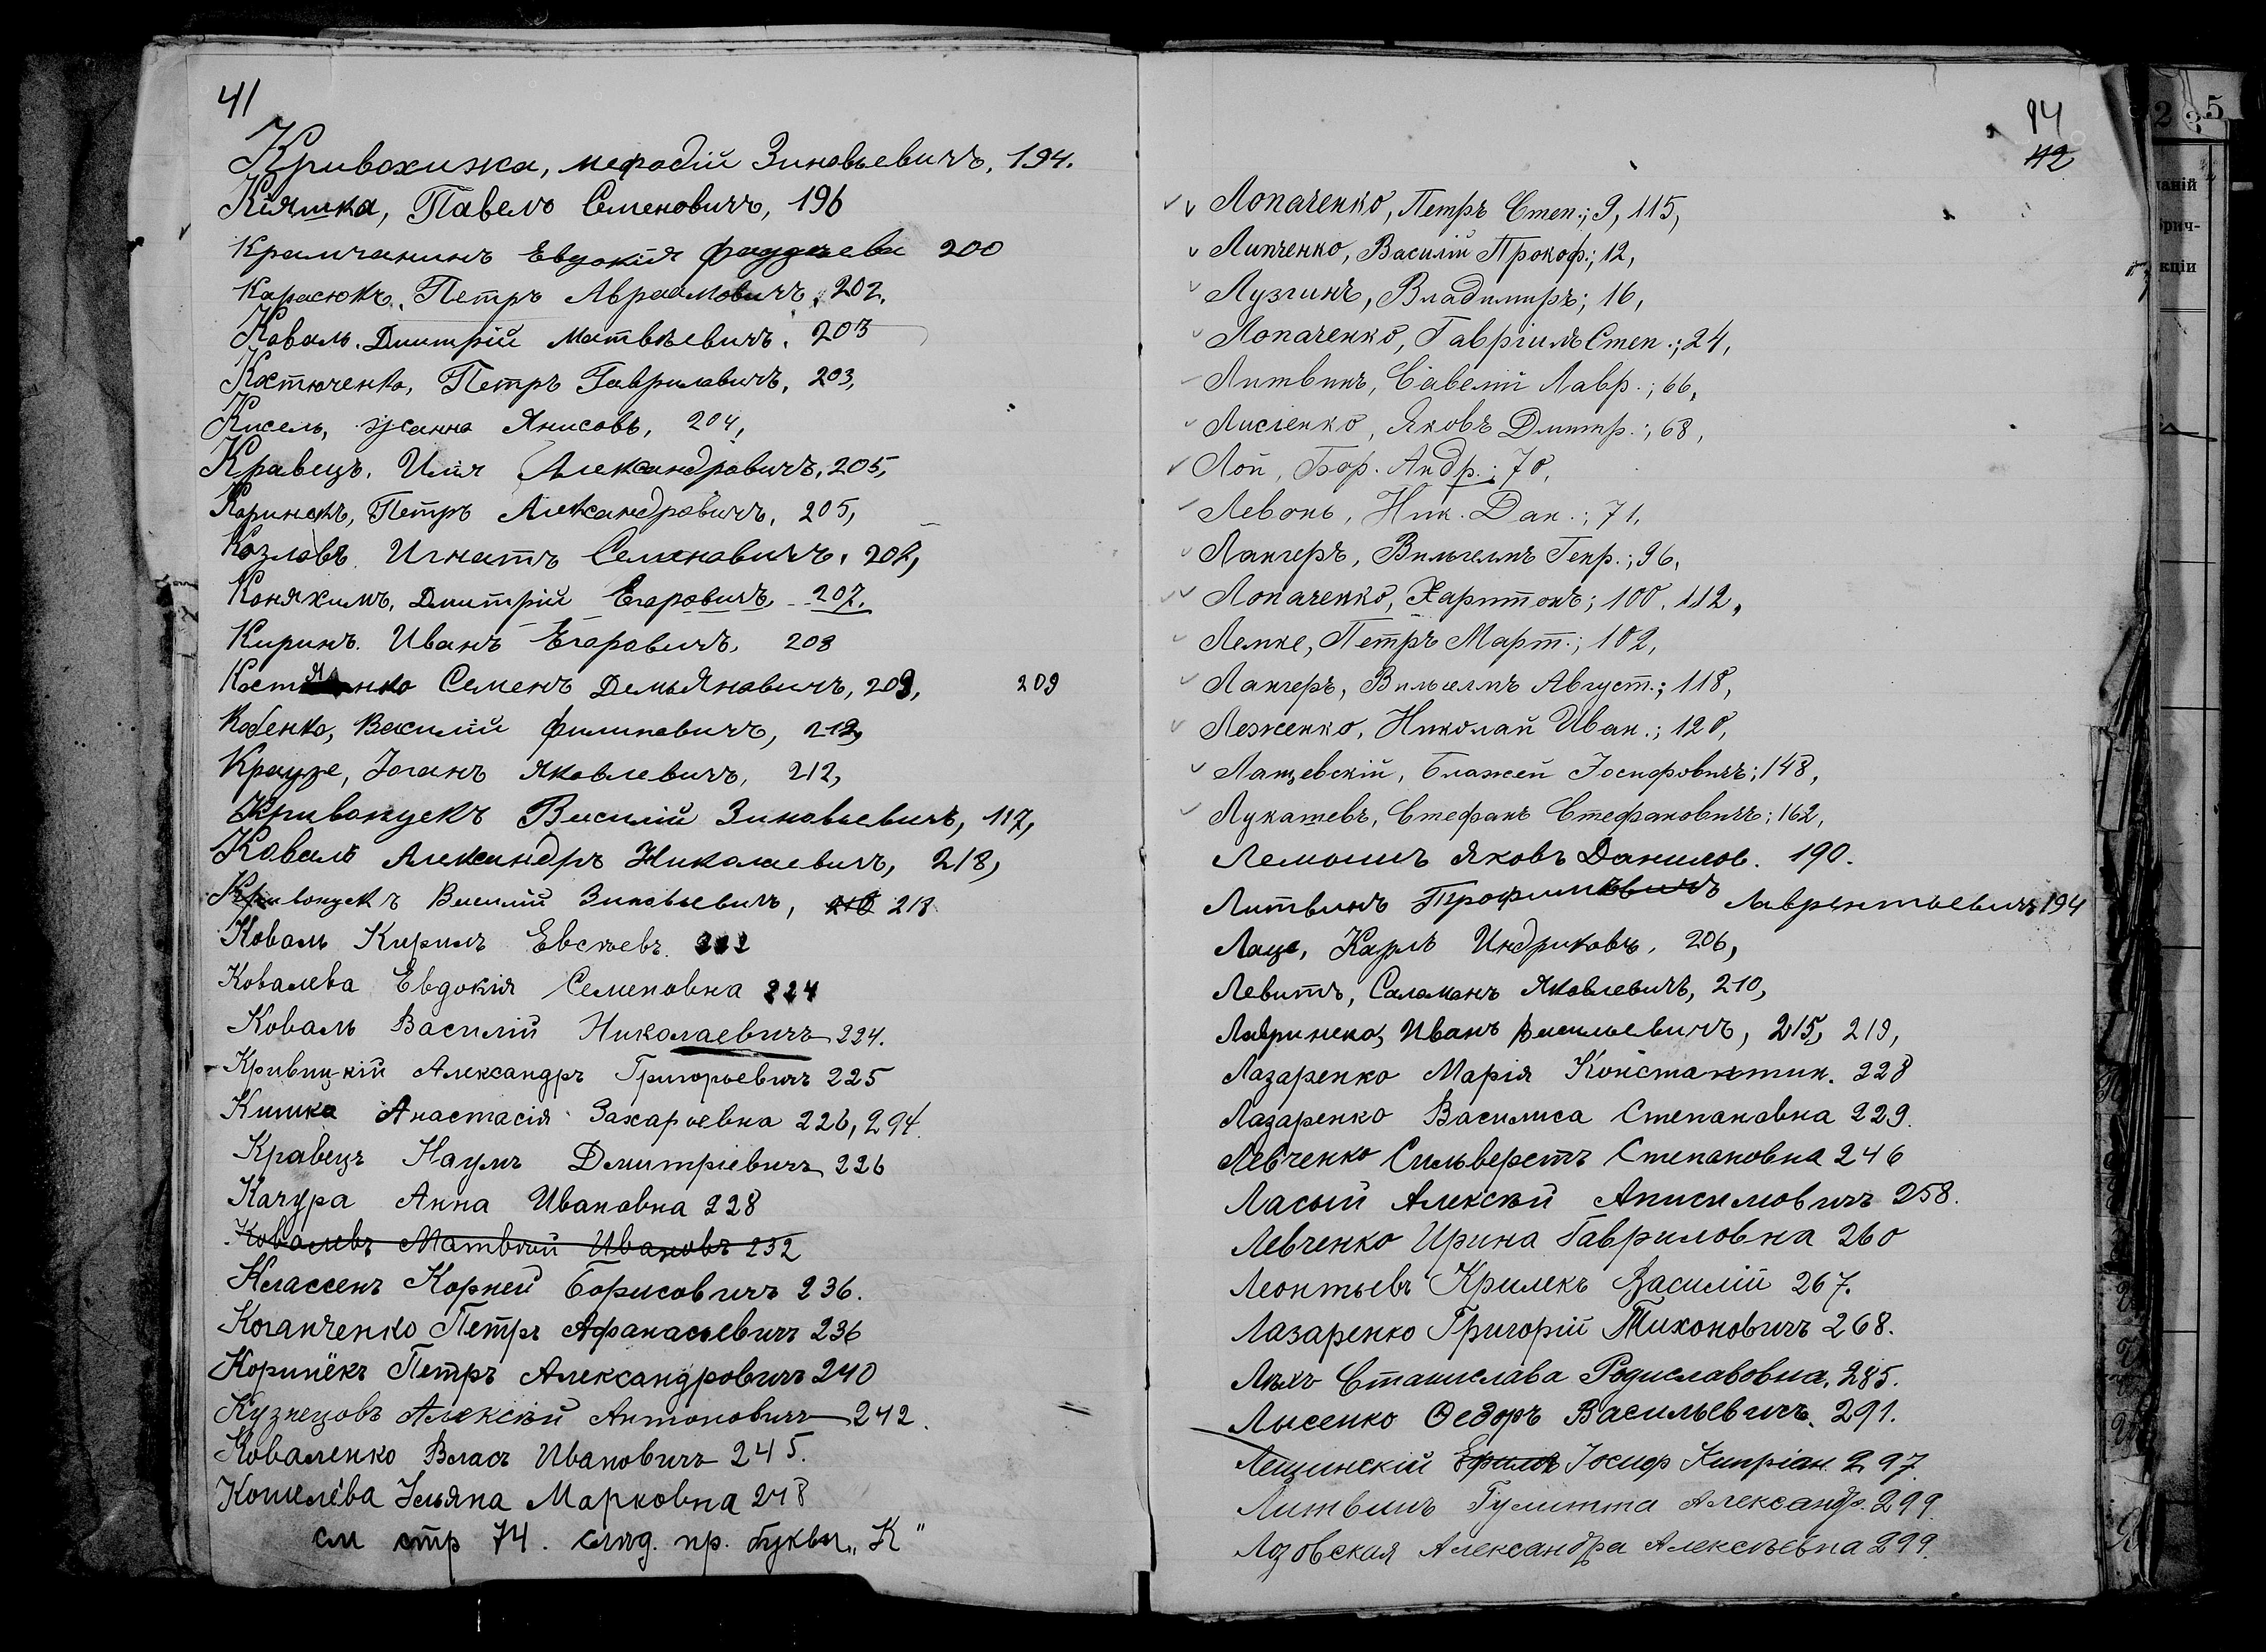 41
Кривохижа, Мефодій Зиновьевичъ, 194.
Кіяшка, Павелъ Семеновичъ, 196
Крамчанинъ Евдокія Фаддѣева 200
Карасюкъ, Петръ Авраамовичъ, 202,
Коваль. Дмитрій Матвѣевичъ. 203
Костюченко, Петръ Гавриловичъ, 203,
Кисель, Жанна Янисовъ, 204,
Кравецъ. Илья Александровичъ, 205,
Коринекъ, Петръ Александровичъ, 205,
Козловъ. Игнатъ Семеновичъ, 206,
Конякимъ, Дмитрій Егоровичъ 207.
Киринъ. Иванъ Егоровичъ, 208
Костянко Семенъ Демьяновичъ, 209, 209
Кобенко, Василій Филиповичъ, 212,
Краузе, Іоганъ Яковлевичъ, 212,
Кривопускъ Василій Зиновьевичъ, 117,
Коваль Александръ Николаевичъ, 218,
Кривопускъ Василій Зиновьевичъ, 218
Коваль Кирилъ Евсѣевъ. 222
Ковалева Евдокія Семеновна 224
Коваль Василій Николаевичъ 224.
Кривицкій Александръ Григорьевичъ 225
Кишка Анастасія Захарьевна 226, 294.
Кравецъ Наумъ Дмитріевичъ 226
Качура Анна Ивановна 228
Ковалевъ Матвѣй Ивановъ 232
Классенъ Корней Борисовичъ 236.
Коганченко Петръ Афанасьевичъ 236
Коринёкъ Петръ Александровичъ 240
Кузнецовъ Алексѣй Антоновичъ 242.
Коваленко Власъ Ивановичъ 245.
Кошелёва Ульяна Марковна 248
см стр 74. слѣд. пр. буквы „К"
94
42
Лопаченко, Петръ Степ.; 9, 115,
Липченко, Василій Прокоф.; 12,
Лузгинъ, Владимиръ; 16,
Лопаченко, Гавріилъ Степ.; 24,
Литвинъ, Савелій Лавр.; 66,
Лисіенко, Яковъ Дмитр.; 68,
Лой, Бор. Андр.; 70,
Левонъ, Ник. Дан.; 71,
Лангеръ, Вильгелмъ Генр.; 96,
Лопаченко, Харитонъ; 100, 112,
Лемке, Петръ Март.; 102,
Лангеръ, Вильгелмъ Август.; 118,
Леженко, Николай Иван.; 120,
Лащевскій, Блажей Іосифовичъ; 148,
Лукашевъ, Стефанъ Стефановичъ; 162,
Лемошъ Яковъ Данилов. 190.
Литвинъ Трофимѣвичъ Лаврентьевичъ 194
Лаце, Карлъ Индриковъ, 206,
Левитъ, Саламанъ Яковлевичъ, 210,
Лавриненко, Иванъ Васильевичъ, 215, 219,
Лазаренко Марія Константин. 228
Лазаренко Василиса Степановна 229.
Левченко Сильверстъ Степановна 246
Ласый Алексѣй Анисимовичъ 258.
Левченко Ирина Гавриловна 260
Леонтьевъ Крилекъ Василій 267.
Лазаренко Григорій Тихоновичъ 268.
Ляхъ Станислава Родиславовна, 285.
Лысенко Ѳедоръ Васильевичъ. 291.
Лещинскій Ефимъ Іосиф Кипріан. 297.
Литвинъ Гулитта Александр. 299.
Лозовская Александра Алексѣевна 299.